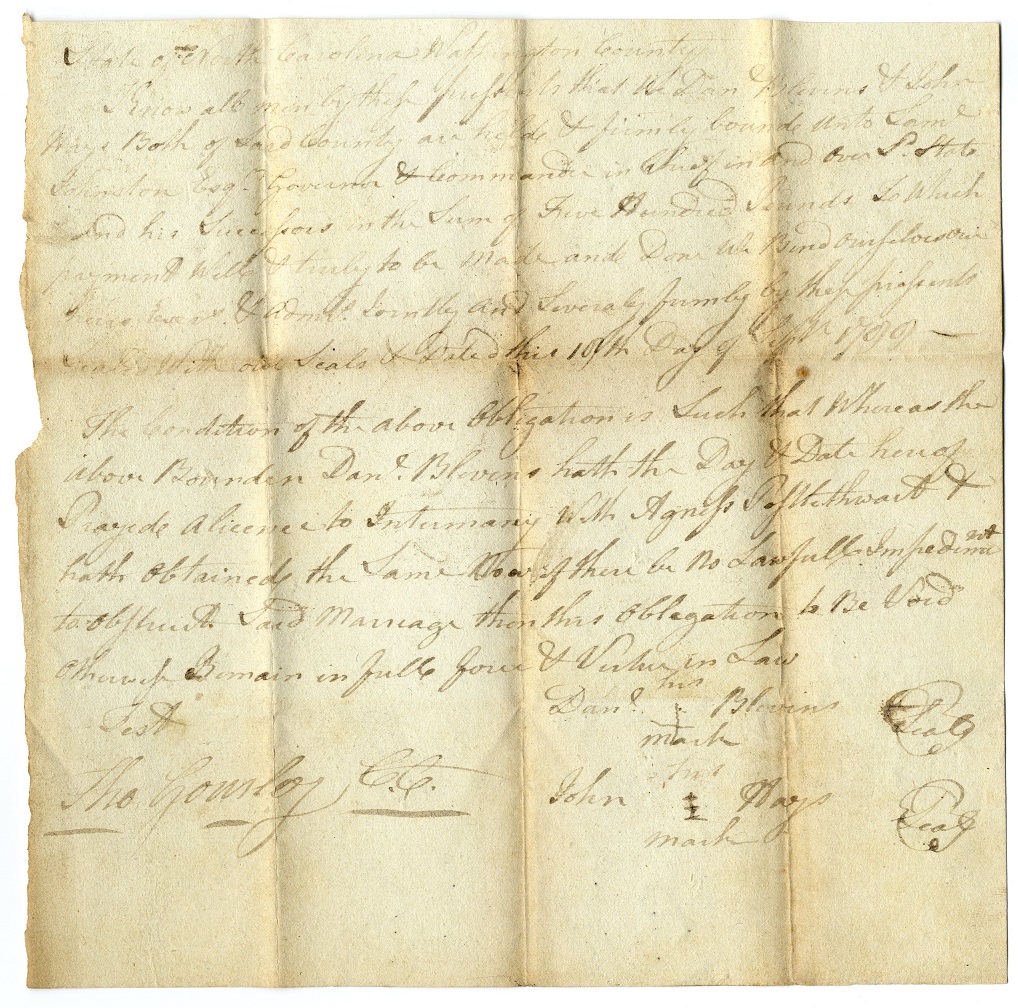 State of North Carolina Washington County
Know all men by these presents that we Danl Blevins & John
Hays Both of Said County are held & firmly bound unto Saml
Johnston Esqr. Governor & Commander in Chief in and Over Sd. State
and his Successors in the Sum of Five Hundred Pounds To Which
payment Well & truly to be Made and Done We Bind ourselves our
heirs Exers. & Admrs. Jointly and Severaly firmly by these presents
Sealed With our Seals & Dated this 10th Day of 1789
The Condition of the above Obligation is Such that Whereas the
above Bounden Danl. Blevins hath the Day & Date hereof
Prayede a licence to Intermarry With Agness Postlethwait &
hath Obtained the Same Now if there be No Lawfull Impediment
to obstruct Said Marriage then this Obligation to Be Void
otherwise Remain in full force & Virtue in Law
Test
Danl. his mark Blevins Seal
Tho Gourley C.C.
John his mark Hays Seal